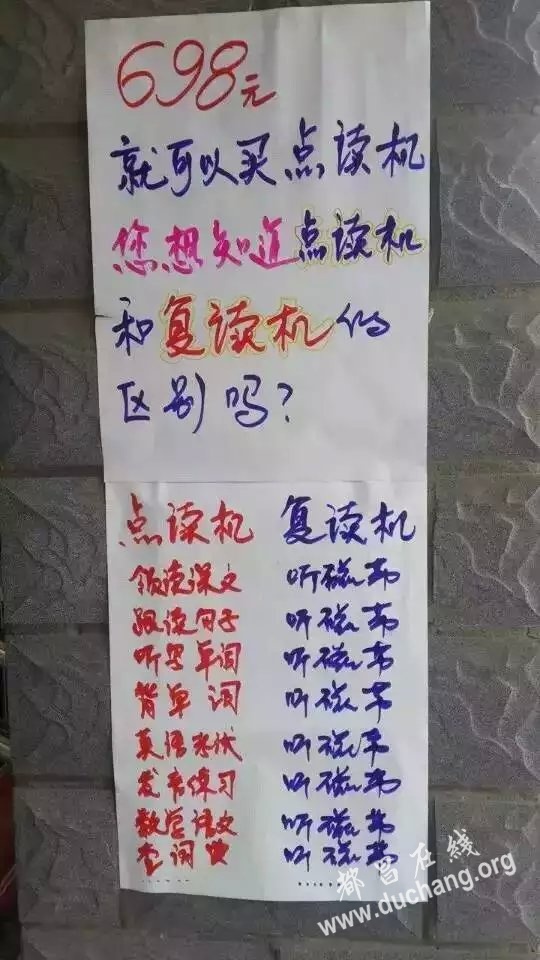 698元
就可以买点读机
您想知道点读机
和复读机的
区别吗?
点读机 复读机
领读课文 听磁带
跟读句子 听磁带
听写单词 听磁带
背单词 听磁带
英语 听磁带
发音练习 听磁带
数学语文 听磁带
查词典 听磁带
...... ......
都昌在线
www.duchang.org